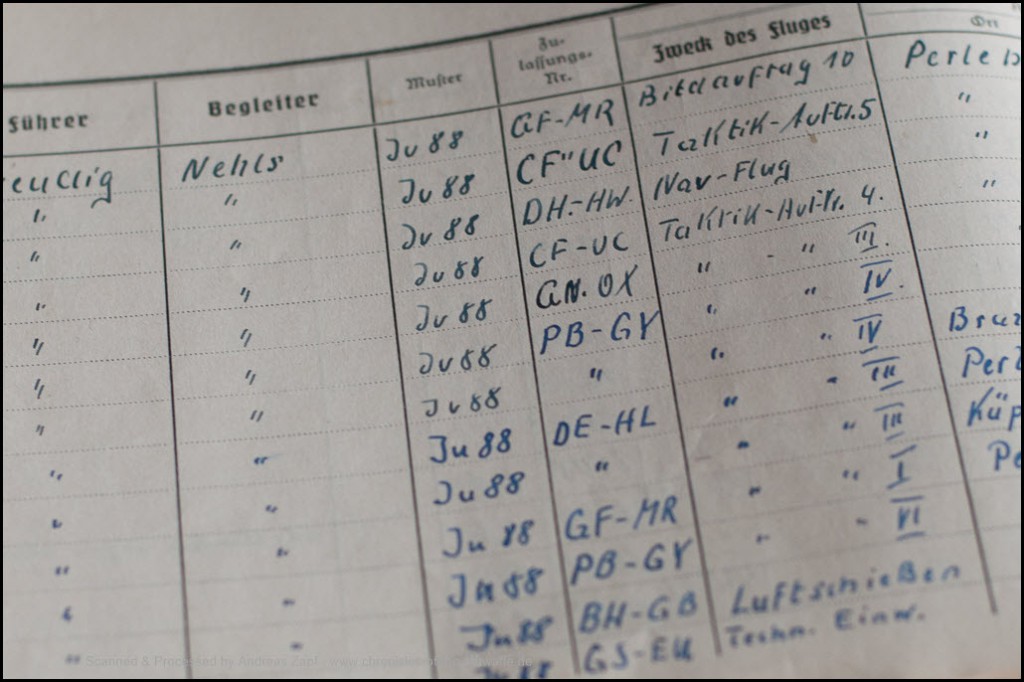 Führer Begleiter Muster Zu- lassungs- Nr. Zweck des Fluges Ort
eudig Nehls Ju 88 GF-MR Bildauftrag 10 Perleb
" " Ju 88 CF"UC Taktik-Auftr.5 "
" " Ju 88 DH-HW. Nav-Flug "
" " Ju 88 CF-UC Taktik-Auftr. 4. "
" " Ju 88 GN.OX " - " III.
" " Ju 88 PB-GY " " IV.
" " Ju 88 " " " IV Bru
" " Ju 88 DE-HL " " III Perl
" " Ju 88 " " " III Küp
" " Ju 88 GF-MR " " I Pe
" " Ju 88 PB-GY " " VI
" " Ju 88 BH-GB Luftschießen
" Ju 88 GS-EU Techn. Einw.
Scanned & Processed by Andreas Zapf